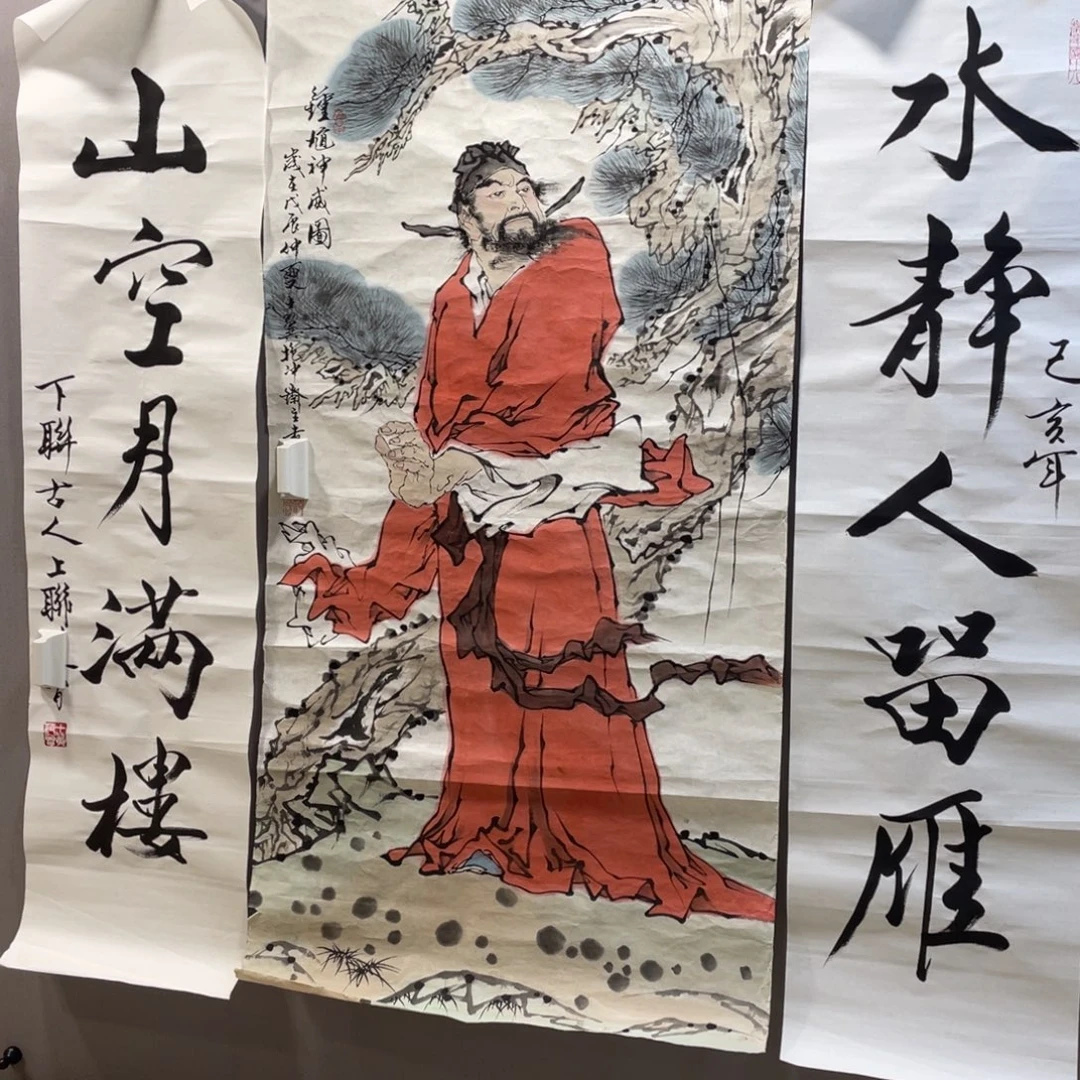 水静人留雁
己亥年
鍾馗神威圖
歲在戊辰仲夏
山空月满楼
下联古人上联